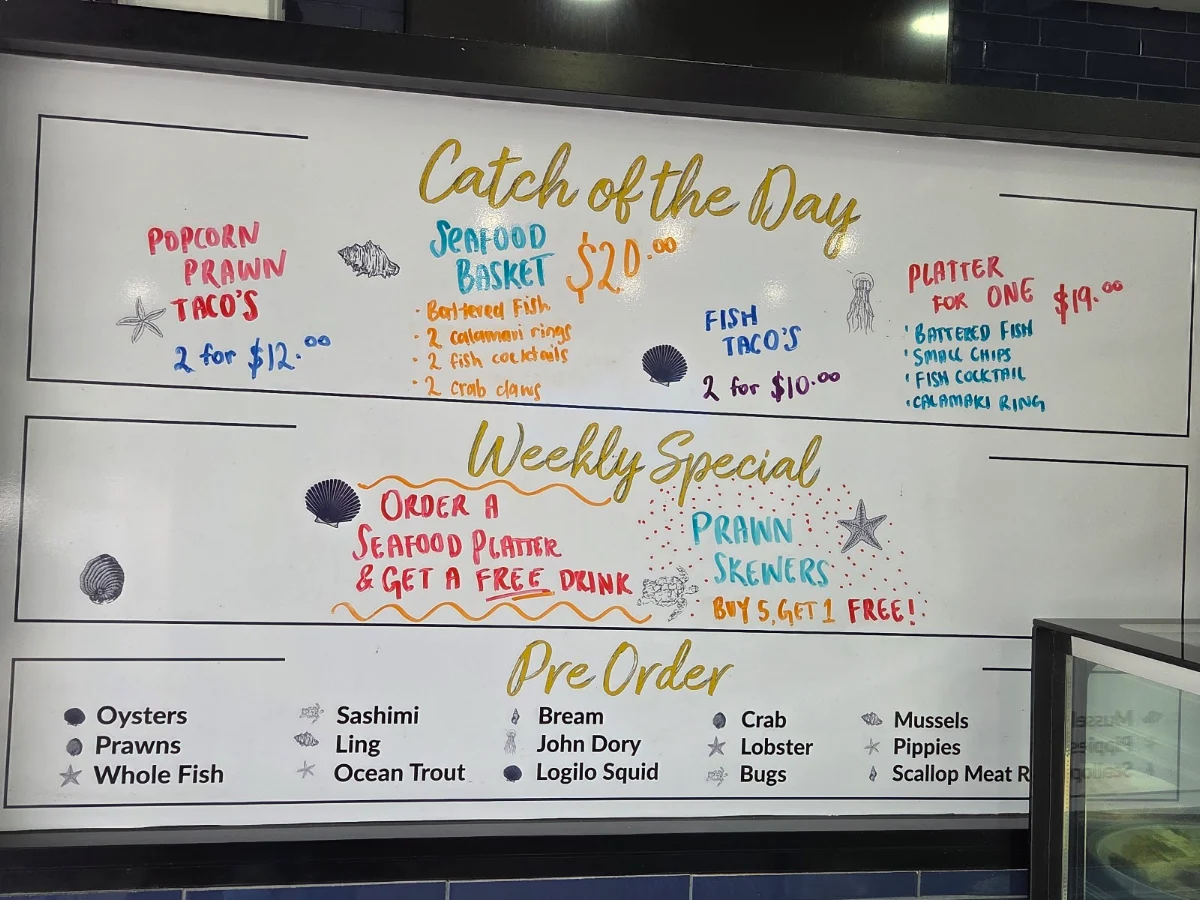 Catch of the Day
POPCORN
PRAWN
TACO'S
2 for $12.00
SEAFOOD
BASKET
$20.00
· Battered Fish
· 2 calamari rings
· 2 fish cocktails
· 2 crab claws
FISH
TACO'S
2 for $10.00
PLATTER
FOR ONE
$19.00
· BATTERED FISH
· SMALL CHIPS
· FISH COCKTAIL
· CALAMARI RING
Weekly Special
ORDER A
SEAFOOD PLATTER
& GET A FREE DRINK
PRAWN
SKEWERS
BUY 5, GET 1 FREE!
Pre Order
Oysters
Prawns
Whole Fish
Sashimi
Ling
Ocean Trout
Bream
John Dory
Logilo Squid
Crab
Lobster
Bugs
Mussels
Pippies
Scallop Meat R